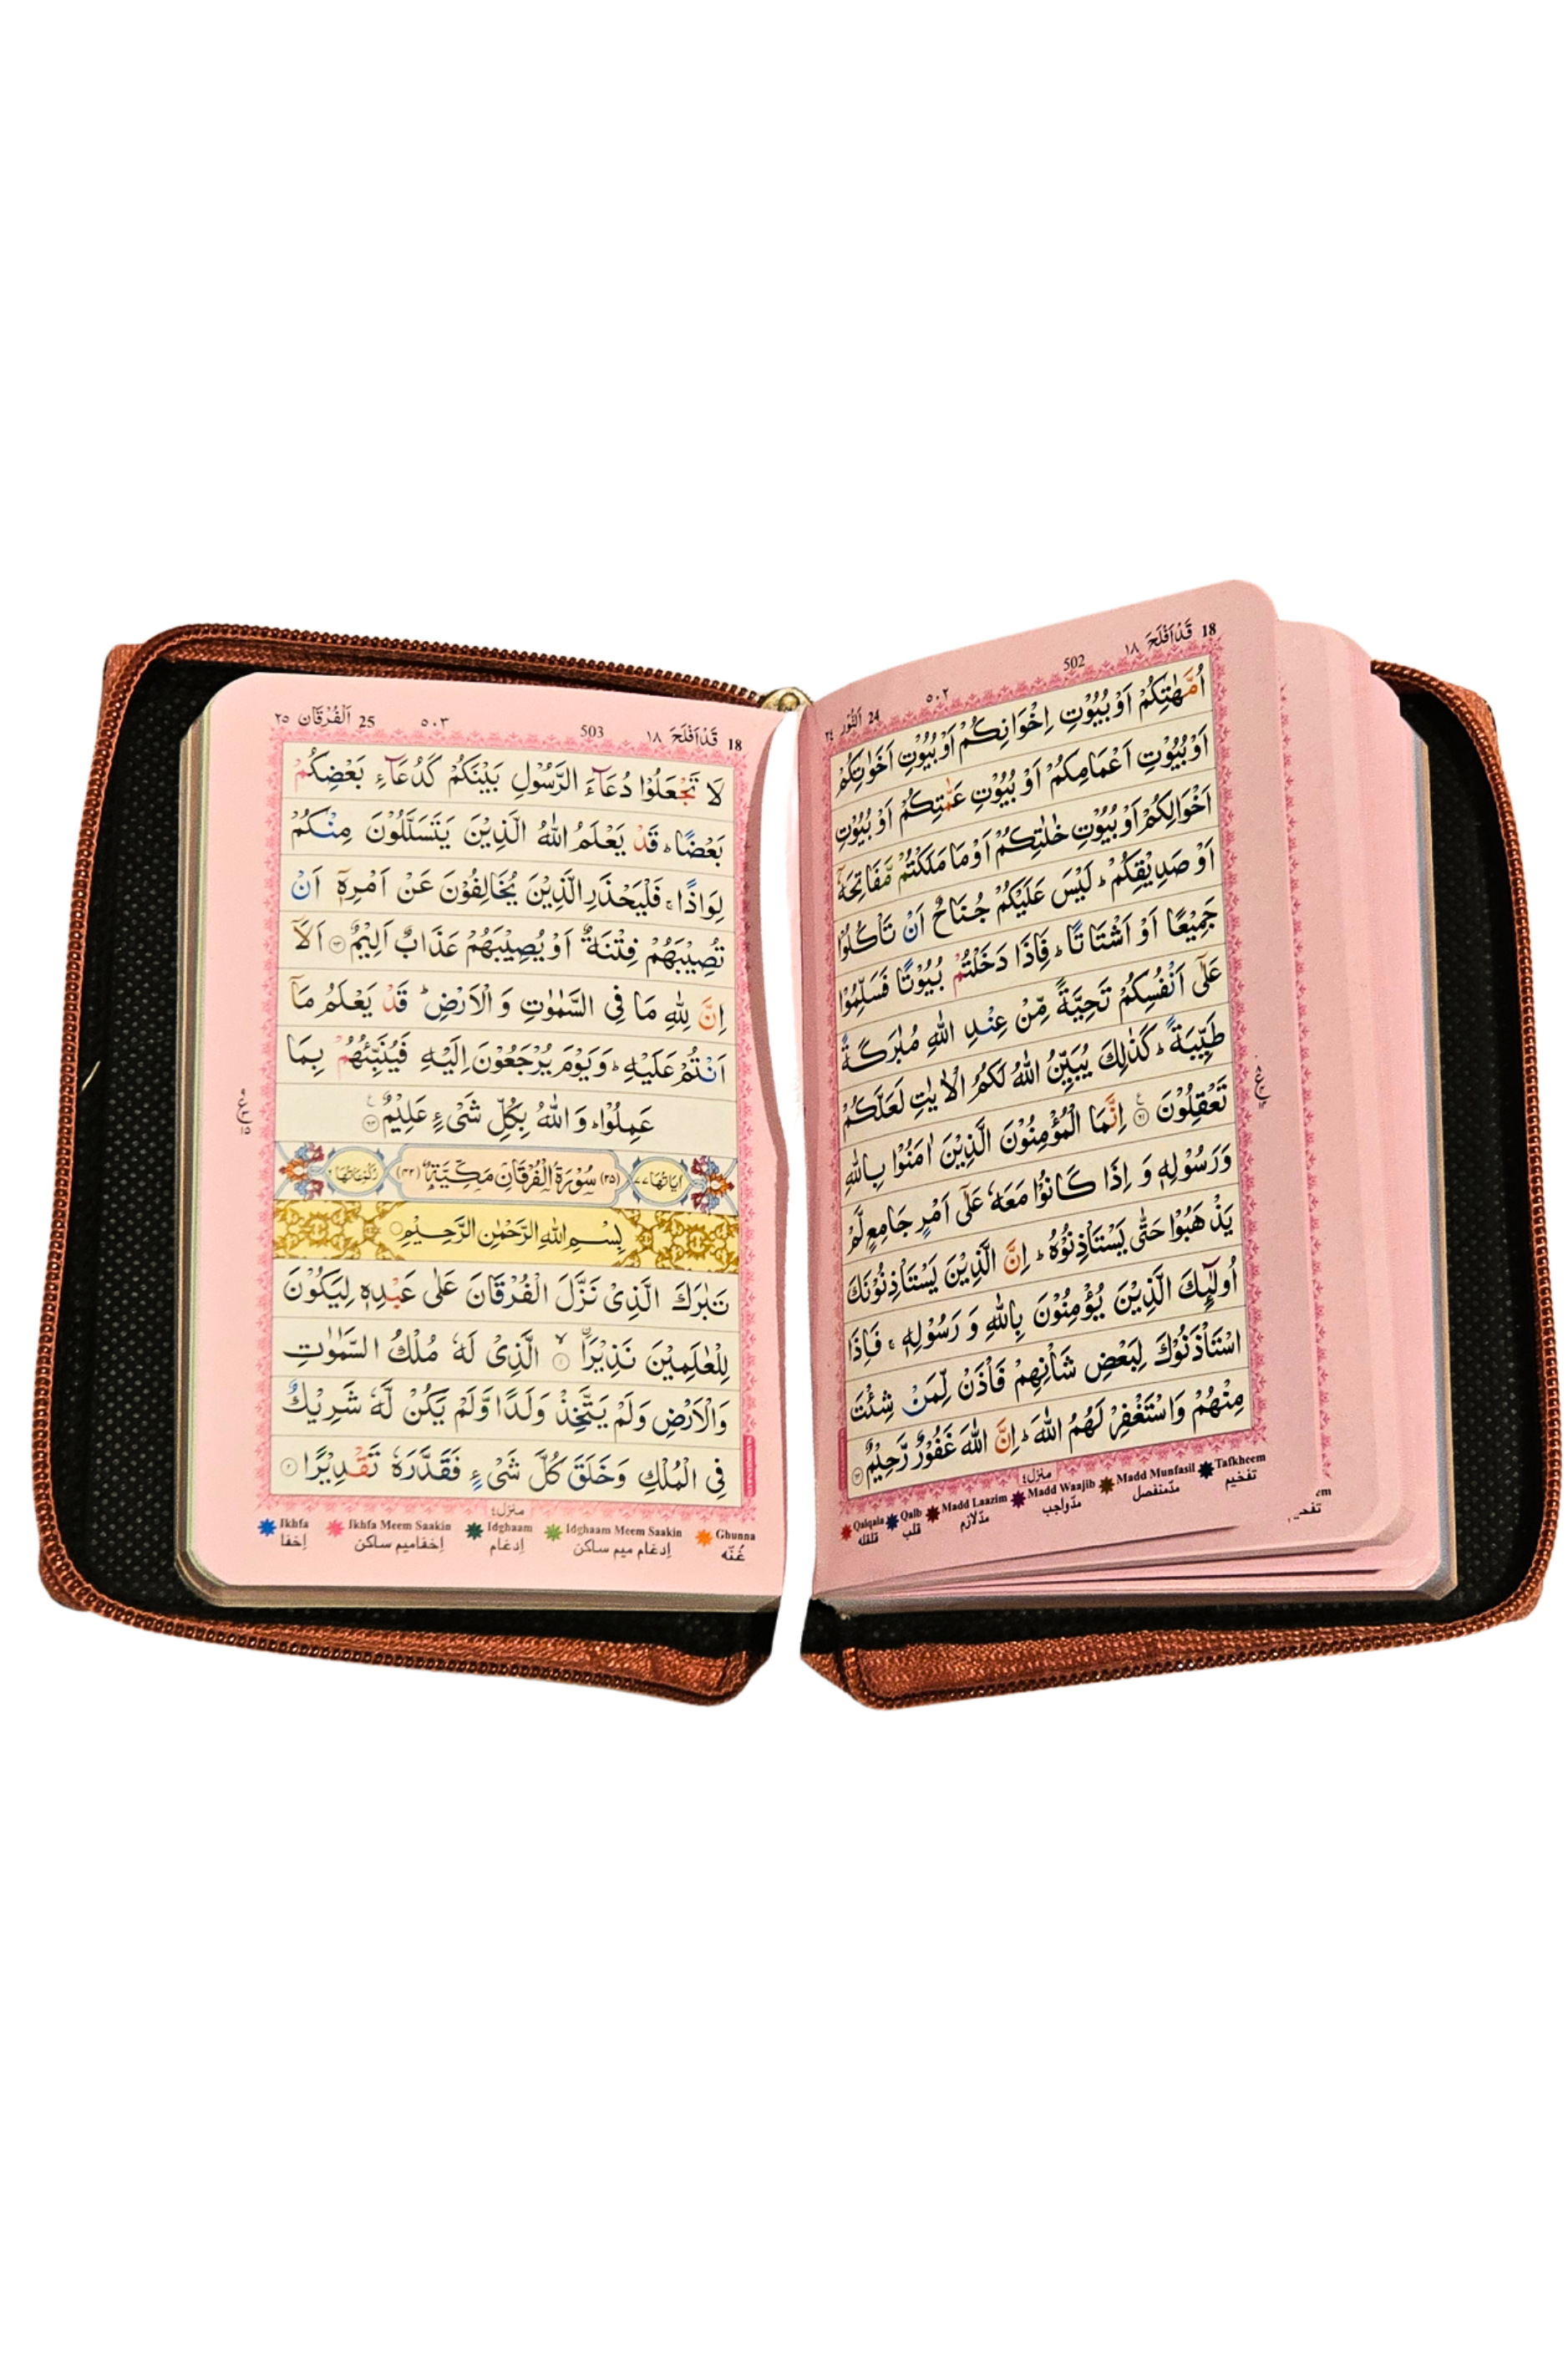 18 قَدْاَفْلَحَ ١٨ 502 ٥٠٢ 24 اَلنُّوْر ٢٤
اُمَّهٰتِكُمْ اَوْ بُيُوْتِ اِخْوَانِكُمْ اَوْ بُيُوْتِ اَخَوٰتِكُمْ
اَوْ بُيُوْتِ اَعْمَامِكُمْ اَوْ بُيُوْتِ عَمّٰتِكُمْ اَوْ بُيُوْتِ
اَخْوَالِكُمْ اَوْ بُيُوْتِ خٰلٰتِكُمْ اَوْ مَا مَلَكْتُمْ مَّفَاتِحَهٗٓ
اَوْ صَدِيْقِكُمْ ؕ لَيْسَ عَلَيْكُمْ جُنَاحٌ اَنْ تَاْكُلُوْا
جَمِيْعًا اَوْ اَشْتَاتًا ؕ فَاِذَا دَخَلْتُمْ بُيُوْتًا فَسَلِّمُوْا
عَلٰٓى اَنْفُسِكُمْ تَحِيَّةً مِّنْ عِنْدِ اللّٰهِ مُبٰرَكَةً
طَيِّبَةً ؕ كَذٰلِكَ يُبَيِّنُ اللّٰهُ لَكُمُ الْاٰيٰتِ لَعَلَّكُمْ
تَعْقِلُوْنَ ۝٦١ اِنَّمَا الْمُؤْمِنُوْنَ الَّذِيْنَ اٰمَنُوْا بِاللّٰهِ
وَرَسُوْلِهٖ وَ اِذَا كَانُوْا مَعَهٗ عَلٰٓى اَمْرٍ جَامِعٍ لَّمْ
يَذْهَبُوْا حَتّٰى يَسْتَاْذِنُوْهُ ؕ اِنَّ الَّذِيْنَ يَسْتَاْذِنُوْنَكَ
اُولٰٓئِكَ الَّذِيْنَ يُؤْمِنُوْنَ بِاللّٰهِ وَ رَسُوْلِهٖ ۚ فَاِذَا
اسْتَاْذَنُوْكَ لِبَعْضِ شَاْنِهِمْ فَاْذَنْ لِّمَنْ شِئْتَ
مِنْهُمْ وَاسْتَغْفِرْ لَهُمُ اللّٰهَ ؕ اِنَّ اللّٰهَ غَفُوْرٌ رَّحِيْمٌ ۝٦٢
منزل٤
Qalqala Qalb Madd Laazim Madd Waajib Madd Munfasil Tafkheem
قلقله قلب مدّلازم مدّواجب مدّمنفصل تفخيم
18 قَدْاَفْلَحَ ١٨ 503 ٥٠٣ 25 اَلْفُرْقَان ٢٥
لَا تَجْعَلُوْا دُعَآءَ الرَّسُوْلِ بَيْنَكُمْ كَدُعَآءِ بَعْضِكُمْ
بَعْضًا ؕ قَدْ يَعْلَمُ اللّٰهُ الَّذِيْنَ يَتَسَلَّلُوْنَ مِنْكُمْ
لِوَاذًا ۚ فَلْيَحْذَرِ الَّذِيْنَ يُخَالِفُوْنَ عَنْ اَمْرِهٖٓ اَنْ
تُصِيْبَهُمْ فِتْنَةٌ اَوْ يُصِيْبَهُمْ عَذَابٌ اَلِيْمٌ ۝٦٣ اَلَآ
اِنَّ لِلّٰهِ مَا فِى السَّمٰوٰتِ وَ الْاَرْضِ ؕ قَدْ يَعْلَمُ مَآ
اَنْتُمْ عَلَيْهِ ؕ وَ يَوْمَ يُرْجَعُوْنَ اِلَيْهِ فَيُنَبِّئُهُمْ بِمَا
عَمِلُوْا ؕ وَ اللّٰهُ بِكُلِّ شَىْءٍ عَلِيْمٌ ۝٦٤
اٰيَاتُهَا ٧٧ (٢٥) سُوْرَةُ الْفُرْقَانِ مَكِّيَّةٌ (٤٢) رُكُوْعَاتُهَا ٦
بِسْمِ اللّٰهِ الرَّحْمٰنِ الرَّحِيْمِ
تَبٰرَكَ الَّذِىْ نَزَّلَ الْفُرْقَانَ عَلٰى عَبْدِهٖ لِيَكُوْنَ
لِلْعٰلَمِيْنَ نَذِيْرَا ۝١ الَّذِىْ لَهٗ مُلْكُ السَّمٰوٰتِ
وَالْاَرْضِ وَلَمْ يَتَّخِذْ وَلَدًا وَّلَمْ يَكُنْ لَّهٗ شَرِيْكٌ
فِى الْمُلْكِ وَخَلَقَ كُلَّ شَىْءٍ فَقَدَّرَهٗ تَقْدِيْرًا ۝٢
منزل٤
Ikhfa Ikhfa Meem Saakin Idghaam Idghaam Meem Saakin Ghunna
اِخفا اِخفاميم ساكن اِدغام اِدغام ميم ساكن غُنّه